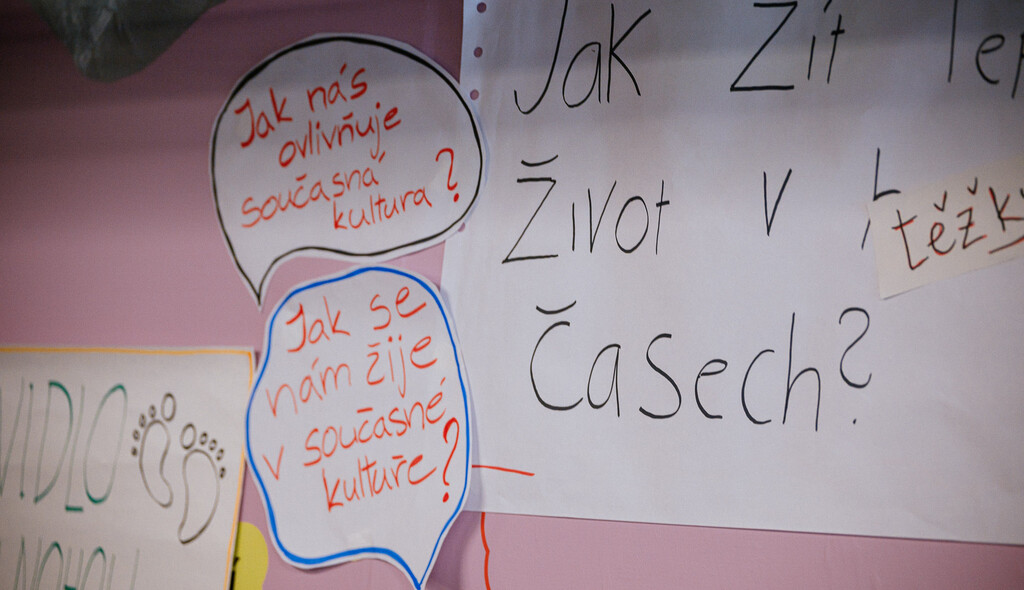 Jak nás
ovlivňuje
současná
kultura?
Jak se
nám žije
v současné
kultuře?
Jak žít
Život v těžk
Časech?
VIDLO